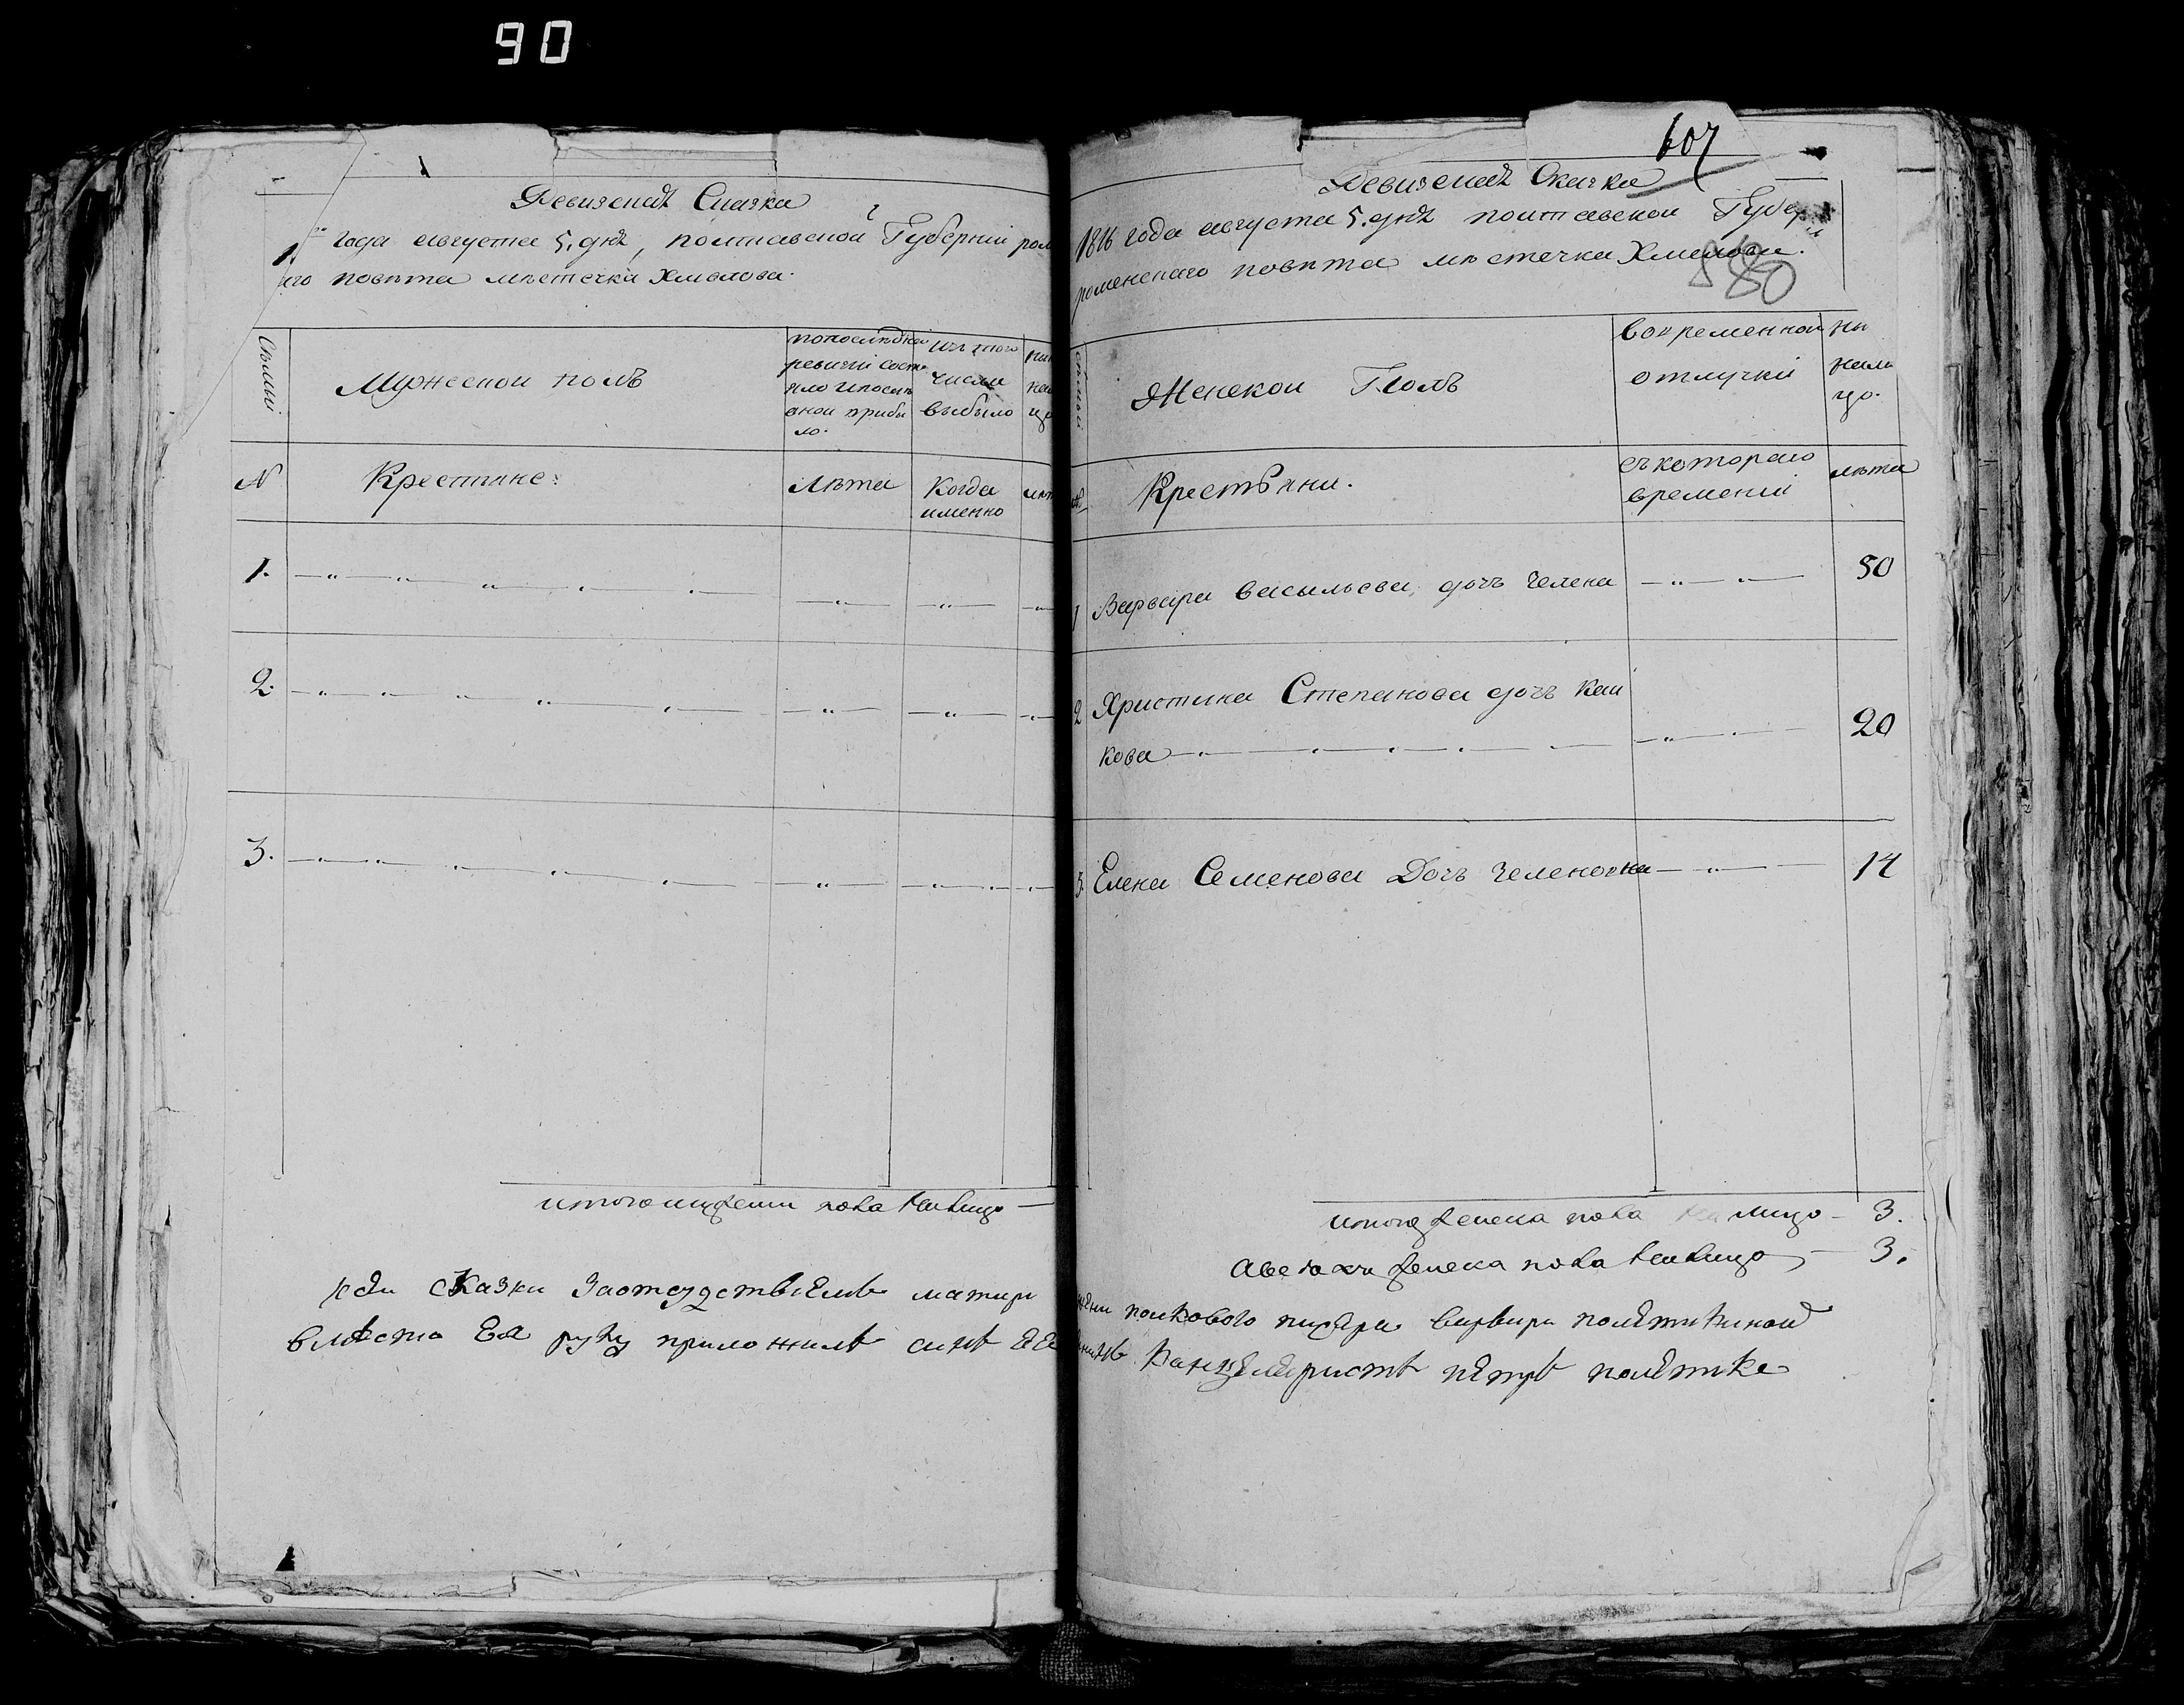 90
Ревизская Сказка
года августа 5. дня, полтавской Губернии ром
го повѣта мѣстечка Хмѣлова.
Мужеской полъ
по последней
ревизии состо
яло и после
оной прибы
ло.
изъ того
числа
выбыло
N
Крестьяне:
Лѣта
Когда
именно
1.
2.
3.
итого мужеска пола на лицо
сказки за отсудствіемъ матери
вмѣсто Ея руку приложилъ синъ ЕЕ
607
580
Ревизская Сказка
1816 года августа 5. дня полтавской Губер
роменского повѣта мѣстечка Хмелова.
Женской Полъ
во временной
отлучки
ны
нали
цо.
Крестьяни.
съ котораго
времений
лѣта
1 Варвара васильева дочъ Челена 50
2 Христина Степанова дочъ Каш
кова 20
3. Елена Семенова Дочъ 14
итого женска пола на лицо 3.
женска пола на лицо 3.
полкового Варвари
Канцеляристъ Пѣтръ